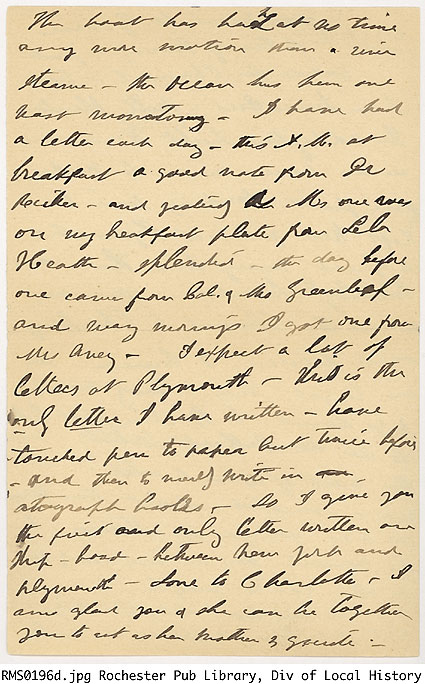 The boat has had at no time
any more motion than a river
steamer - the Ocean has been one
vast monotony - I have had
a letter each day - this A.M. at
breakfast a good note from Dr
and one was
on my breakfast plate from Lela
Heath - splendid - the day before
one came from Col. & Mrs Greenleaf -
and many mornings I got one from
Mrs Avery - I expect a lot of
letters at Plymouth - This is the
only letter I have written - have
touched pen to paper but twice before
- and then to merely write in
atograph books - So I give you
the first and only letter written on
Ship-board - between New York and
Plymouth - Love to Charlotte - I
am glad you & she can be together
you to act as her mother & guide -
RMS0196d.jpg Rochester Pub Library, Div of Local History